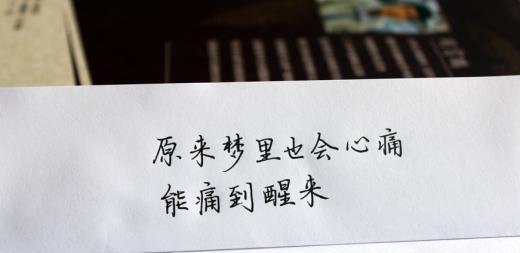 原来梦里也会心痛
能痛到醒来